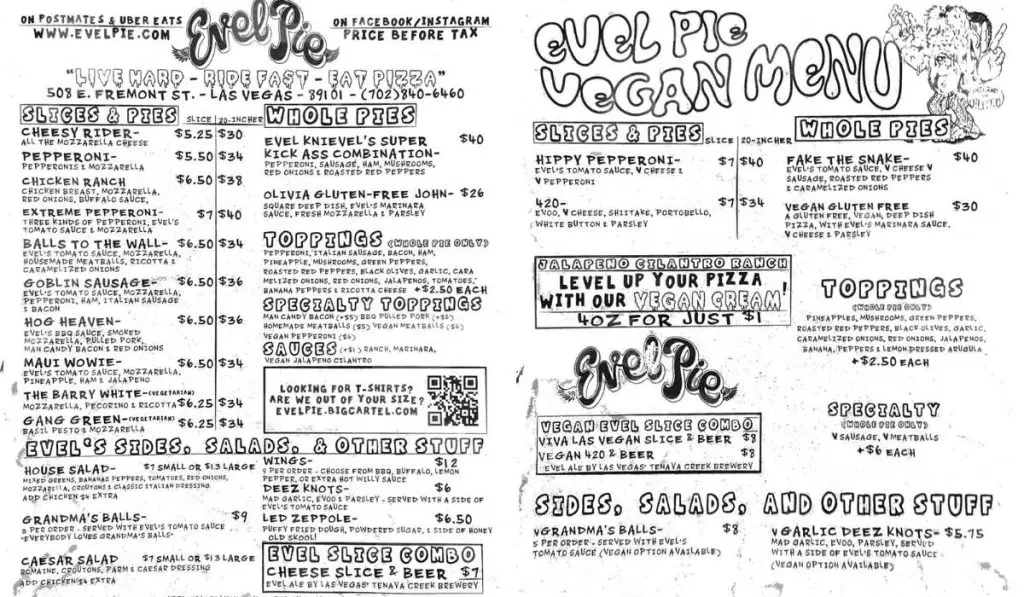 ON POSTMATES & UBER EATS
WWW.EVELPIE.COM
Evel Pie
ON FACEBOOK/INSTAGRAM
PRICE BEFORE TAX
"LIVE HARD - RIDE FAST - EAT PIZZA"
508 E. FREMONT ST. - LAS VEGAS - 89101 - (702)840-6460
SLICES & PIES SLICE 20-INCHER
CHEESY RIDER- $5.25 $30
ALL THE MOZZARELLA CHEESE
PEPPERONI- $5.50 $34
PEPPERONIS & MOZZARELLA
CHICKEN RANCH $6.50 $38
CHICKEN BREAST, MOZZARELLA,
RED ONIONS, BUFFALO SAUCE,
EXTREME PEPPERONI- $7 $40
THREE KINDS OF PEPPERONI, EVEL'S
TOMATO SAUCE & MOZZARELLA
BALLS TO THE WALL- $6.50 $34
EVEL'S TOMATO SAUCE, MOZZARELLA,
HOUSEMADE MEATBALLS, RICOTTA &
CARAMELIZED ONIONS
GOBLIN SAUSAGE- $6.50 $36
EVEL'S TOMATO SAUCE, MOZZARELLA,
PEPPERONI, HAM, ITALIAN SAUSAGE
& BACON
HOG HEAVEN- $6.50 $36
EVEL'S BBQ SAUCE, SMOKED
MOZZARELLA, PULLED PORK,
MAN CANDY BACON & RED ONIONS
MAUI WOWIE- $6.50 $34
EVEL'S TOMATO SAUCE, MOZZARELLA,
PINEAPPLE, HAM & JALAPENO
THE BARRY WHITE-(VEGETARIAN)
MOZZARELLA, PECORINO & RICOTTA $6.25 $34
GANG GREEN-(VEGETARIAN) $6.25 $34
BASIL PESTO & MOZZARELLA
WHOLE PIES
EVEL KNIEVEL'S SUPER $40
KICK ASS COMBINATION-
PEPPERONI, SAUSAGE, HAM, MUSHROOMS,
RED ONIONS & ROASTED RED PEPPERS
OLIVIA GLUTEN-FREE JOHN- $26
SQUARE DEEP DISH, EVEL'S MARINARA
SAUCE, FRESH MOZZARELLA & PARSLEY
TOPPINGS (WHOLE PIE ONLY)
PEPPERONI, ITALIAN SAUSAGE, BACON, HAM,
PINEAPPLE, MUSHROOMS, GREEN PEPPERS,
ROASTED RED PEPPERS, BLACK OLIVES, GARLIC, CARA
MELIZED ONIONS, RED ONIONS, JALAPENOS, TOMATOES,
BANANA PEPPERS & RICOTTA CHEESE +$2.50 EACH
SPECIALTY TOPPINGS
MAN CANDY BACON (+$5) BBQ PULLED PORK (+$6)
HOMEMADE MEATBALLS ($5) VEGAN MEATBALLS ($6)
VEGAN PEPPERONI ($6)
SAUCES (+$1) RANCH, MARINARA,
VEGAN JALAPENO CILANTRO
LOOKING FOR T-SHIRTS?
ARE WE OUT OF YOUR SIZE?
EVELPIE.BIGCARTEL.COM
EVEL'S SIDES, SALADS, & OTHER STUFF
HOUSE SALAD- $7 SMALL OR $13 LARGE
MIXED GREENS, BANANAS PEPPERS, TOMATOES, RED ONIONS,
MOZZARELLA, CROUTONS & CLASSIC ITALIAN DRESSING
ADD CHICKEN $4 EXTRA
GRANDMA'S BALLS- $9
5 PER ORDER - SERVED WITH EVEL'S TOMATO SAUCE
"EVERYBODY LOVES GRANDMA'S BALLS"
CAESAR SALAD $7 SMALL OR $13 LARGE
ROMAINE, CROUTONS, PARM & CAESAR DRESSING
ADD CHICKEN $4 EXTRA
WINGS- $12
9 PER ORDER - CHOOSE FROM BBQ, BUFFALO, LEMON
PEPPER, OR EXTRA HOT WILLY SAUCE
DEEZ KNOTS- $6
MAD GARLIC, EVOO & PARSLEY - SERVED WITH A SIDE OF
EVEL'S TOMATO SAUCE
LED ZEPPOLE- $6.50
PUFFY FRIED DOUGH, POWDERED SUGAR, & SIDE OF HONEY
OLD SKOOL!
EVEL SLICE COMBO
CHEESE SLICE & BEER $7
EVEL ALE BY LAS VEGAS' TENAYA CREEK BREWERY
EVEL PIE
VEGAN MENU
SLICES & PIES SLICE 20-INCHER
HIPPY PEPPERONI- $7 $40
EVEL'S TOMATO SAUCE, V CHEESE &
V PEPPERONI
420- $7 $34
EVOO, V CHEESE, SHIITAKE, PORTOBELLO,
WHITE BUTTON & PARSLEY
WHOLE PIES
FAKE THE SNAKE- $40
EVEL'S TOMATO SAUCE, V CHEESE V
SAUSAGE, ROASTED RED PEPPERS
& CARAMELIZED ONIONS
VEGAN GLUTEN FREE $30
A GLUTEN FREE, VEGAN, DEEP DISH
PIZZA, WITH EVEL'S MARINARA SAUCE,
V CHEESE & PARSLEY
JALAPENO CILANTRO RANCH
LEVEL UP YOUR PIZZA
WITH OUR VEGAN CREAM!
4OZ FOR JUST $1
Evel Pie
VEGAN EVEL SLICE COMBO
VIVA LAS VEGAN SLICE & BEER $8
VEGAN 420 & BEER $8
EVEL ALE BY LAS VEGAS' TENAYA CREEK BREWERY
TOPPINGS
(WHOLE PIE ONLY)
PINEAPPLES, MUSHROOMS, GREEN PEPPERS,
ROASTED RED PEPPERS, BLACK OLIVES, GARLIC,
CARAMELIZED ONIONS, RED ONIONS, JALAPENOS,
BANANA, PEPPERS & LEMON DRESSED ARUGULA
+$2.50 EACH
SPECIALTY
(WHOLE PIE ONLY)
V SAUSAGE, V MEATBALLS
+$6 EACH
SIDES, SALADS, AND OTHER STUFF
VGRANDMA'S BALLS- $8
5 PER ORDER - SERVED WITH EVEL'S
TOMATO SAUCE (VEGAN OPTION AVAILABLE)
V GARLIC DEEZ KNOTS- $5.75
MAD GARLIC, EVOO, PARSLEY, SERVED
WITH A SIDE OF EVEL'S TOMATO SAUCE
(VEGAN OPTION AVAILABLE)